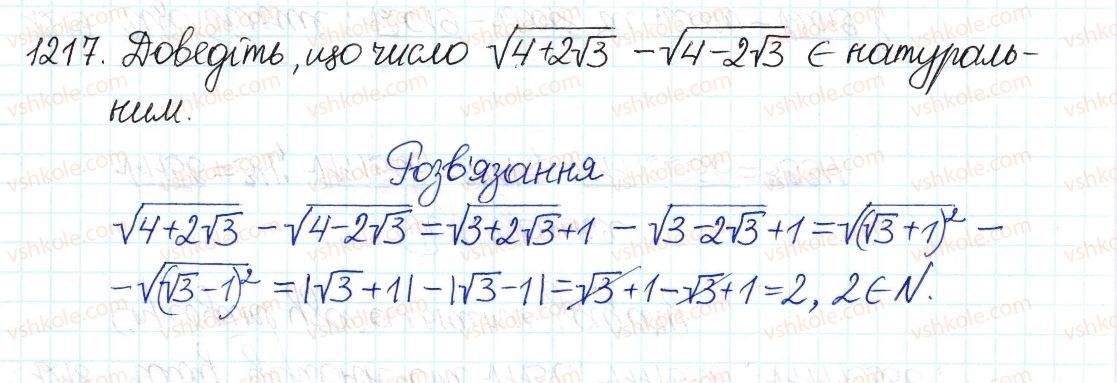 1217. Доведіть, що число √(4+2√3) - √(4-2√3) є натураль-
ним.
Розв'язання
√(4+2√3) - √(4-2√3) = √(3+2√3+1) - √(3-2√3+1) = √((√3+1)²) -
- √((√3-1)²) = |√3+1| - |√3-1| = √3+1-√3+1 = 2, 2∈N.